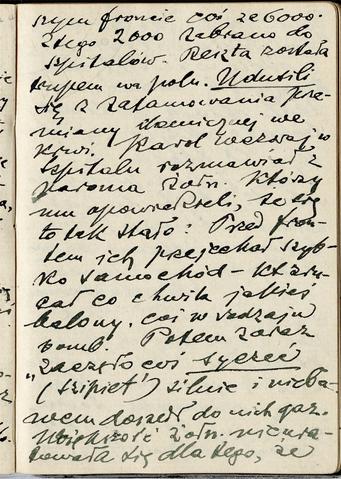 szym froncie coś ze 6000.
Z tego 2000 zabrano do
szpitalów. Reszta została
trupem na polu. Udusili
się z zatamowania prze-
miany tlenicznej we
krwi. Karol wczoraj w
szpitalu rozmawiał z
paroma żołn. którzy
mu opowiedzieli, że się
to tak stało: Przed fron-
tem ich przejechał szyb-
ko samochód – któ rzu-
cał co chwila jakieś
balony, coś w rodzaju
bomb. Potem zaraz
„zaczęło coś syczeć
(szipieť) silnie i nieba-
wem doszedł do nich gaz.
Większość żołn. nie ura-
towała się dla tego, że